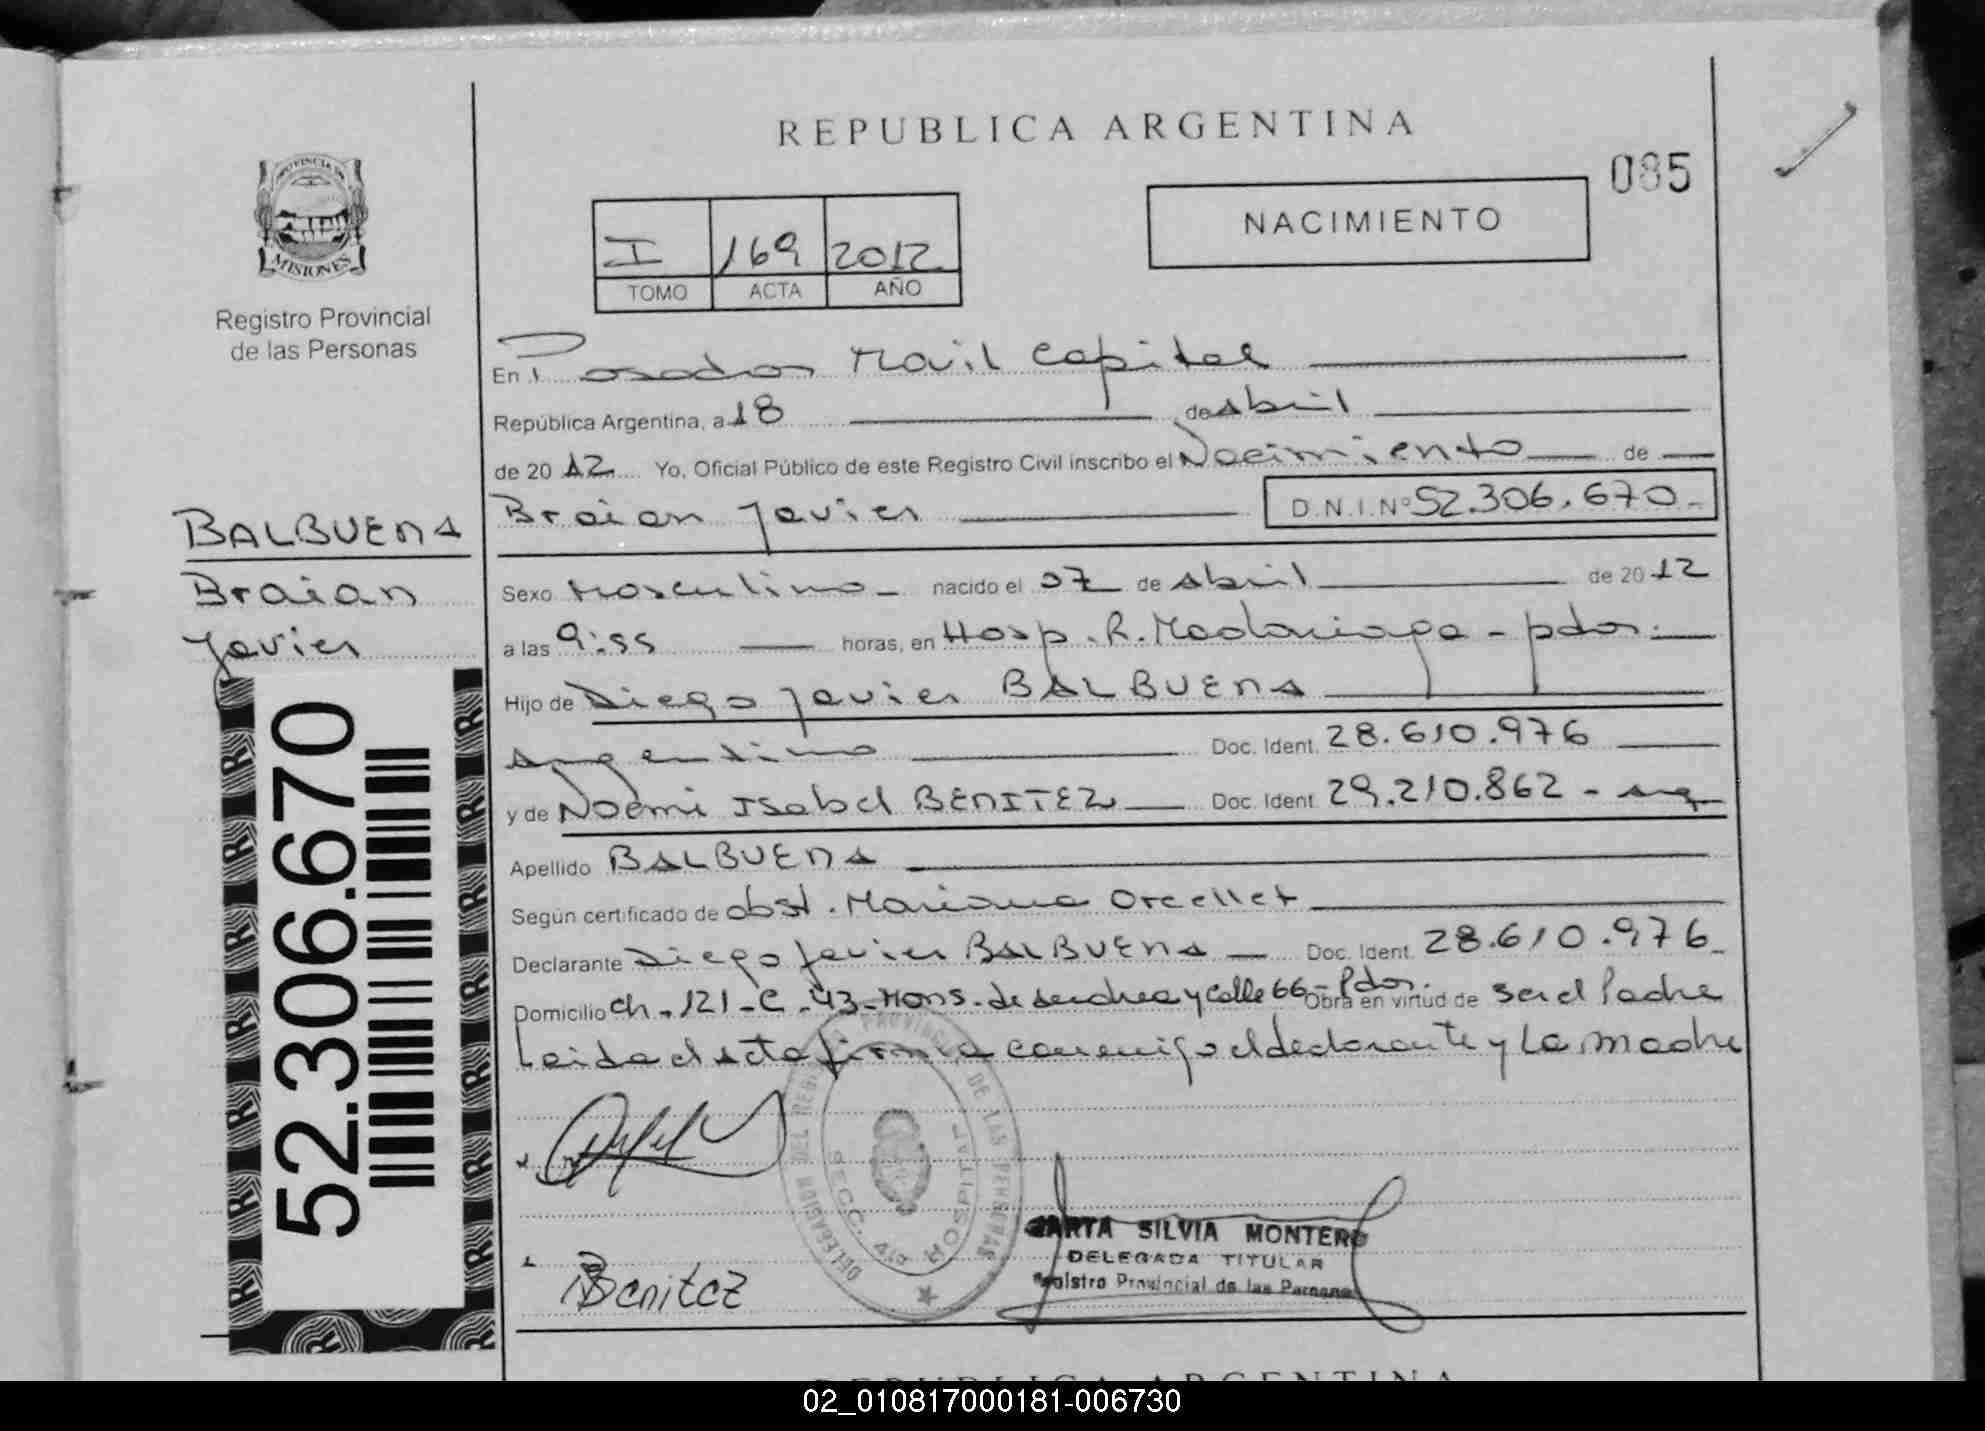 REPUBLICA ARGENTINA
085
NACIMIENTO
I 169 2012
TOMO ACTA AÑO
PROVINCIA DE
MISIONES
Registro Provincial
de las Personas
BALBUENA
Braian
Javier
52.306.670
En Posadas Movil Capital
República Argentina, a 18 de Abril
de 20 12 Yo, Oficial Público de este Registro Civil inscribo el Nacimiento de
Braian Javier D.N.I.Nº 52.306.670.-
Sexo Masculino - nacido el 07 de Abril de 20 12
a las 9:55 horas, en Hosp. R. Madariaga - pdas.
Hijo de Diego Javier BALBUENA
Argentino Doc. Ident. 28.610.976
y de Noemi Isabel BENITEZ Doc. Ident. 29.210.862 - arg
Apellido BALBUENA
Según certificado de obst. Mariana Orcellet
Declarante Diego Javier BALBUENA Doc. Ident. 28.610.976-
Domicilio Ch. 121 - C. 43 - Mons. de Andrea y Calle 66 - Pdas. Obra en virtud de ser el Padre
Leida el acta firma conmigo el declarante y la madre
DELEGACION DEL REGISTRO PROVINCIAL DE LAS PERSONAS
SECC. 4ta HOSPITAL
Benitez
MARTA SILVIA MONTERO
DELEGADA TITULAR
Registro Provincial de las Personas
REPUBLICA ARGENTINA
02_010817000181-006730